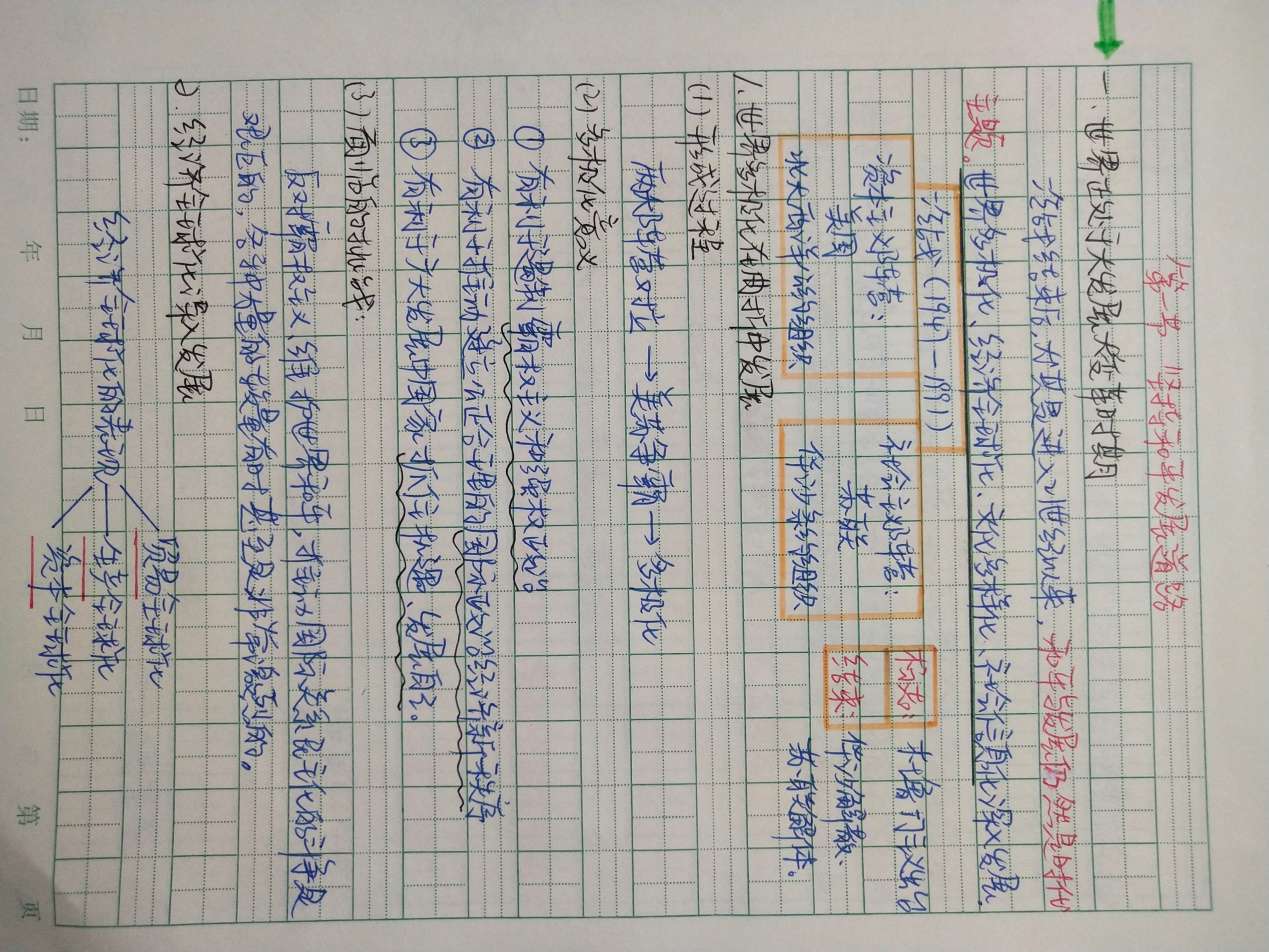 第一节 坚持和平发展道路
一、世界正处于大发展大变革时期
冷战结束后,尤其是进入21世纪以来,和平与发展仍然是时代
主题。世界多极化、经济全球化、文化多样化、社会信息化深入发展。
冷战(1947—1991)
资本主义阵营:
美国
北大西洋公约组织
社会主义阵营:
苏联
华沙条约组织
标志:
结束:
杜鲁门主义出台
华约解散;
苏联解体。
1.世界多极化在曲折中发展
(1)形成过程
两大阵营对峙→美苏争霸→多极化
(2)多极化意义
①有利于遏制霸权主义和强权政治。
②有利于推动建立公正合理的国际政治经济新秩序
③有利于广大发展中国家抓住机遇、发展自己。
(3)面临的挑战:
反对霸权主义,维护世界和平,推动国际关系民主化的斗争是
长期的,各种力量的发展有时甚至是非常激烈的。
2.经济全球化深入发展
经济全球化的表现
贸易全球化
生产全球化
资本全球化
日期: 年 月 日 第 页